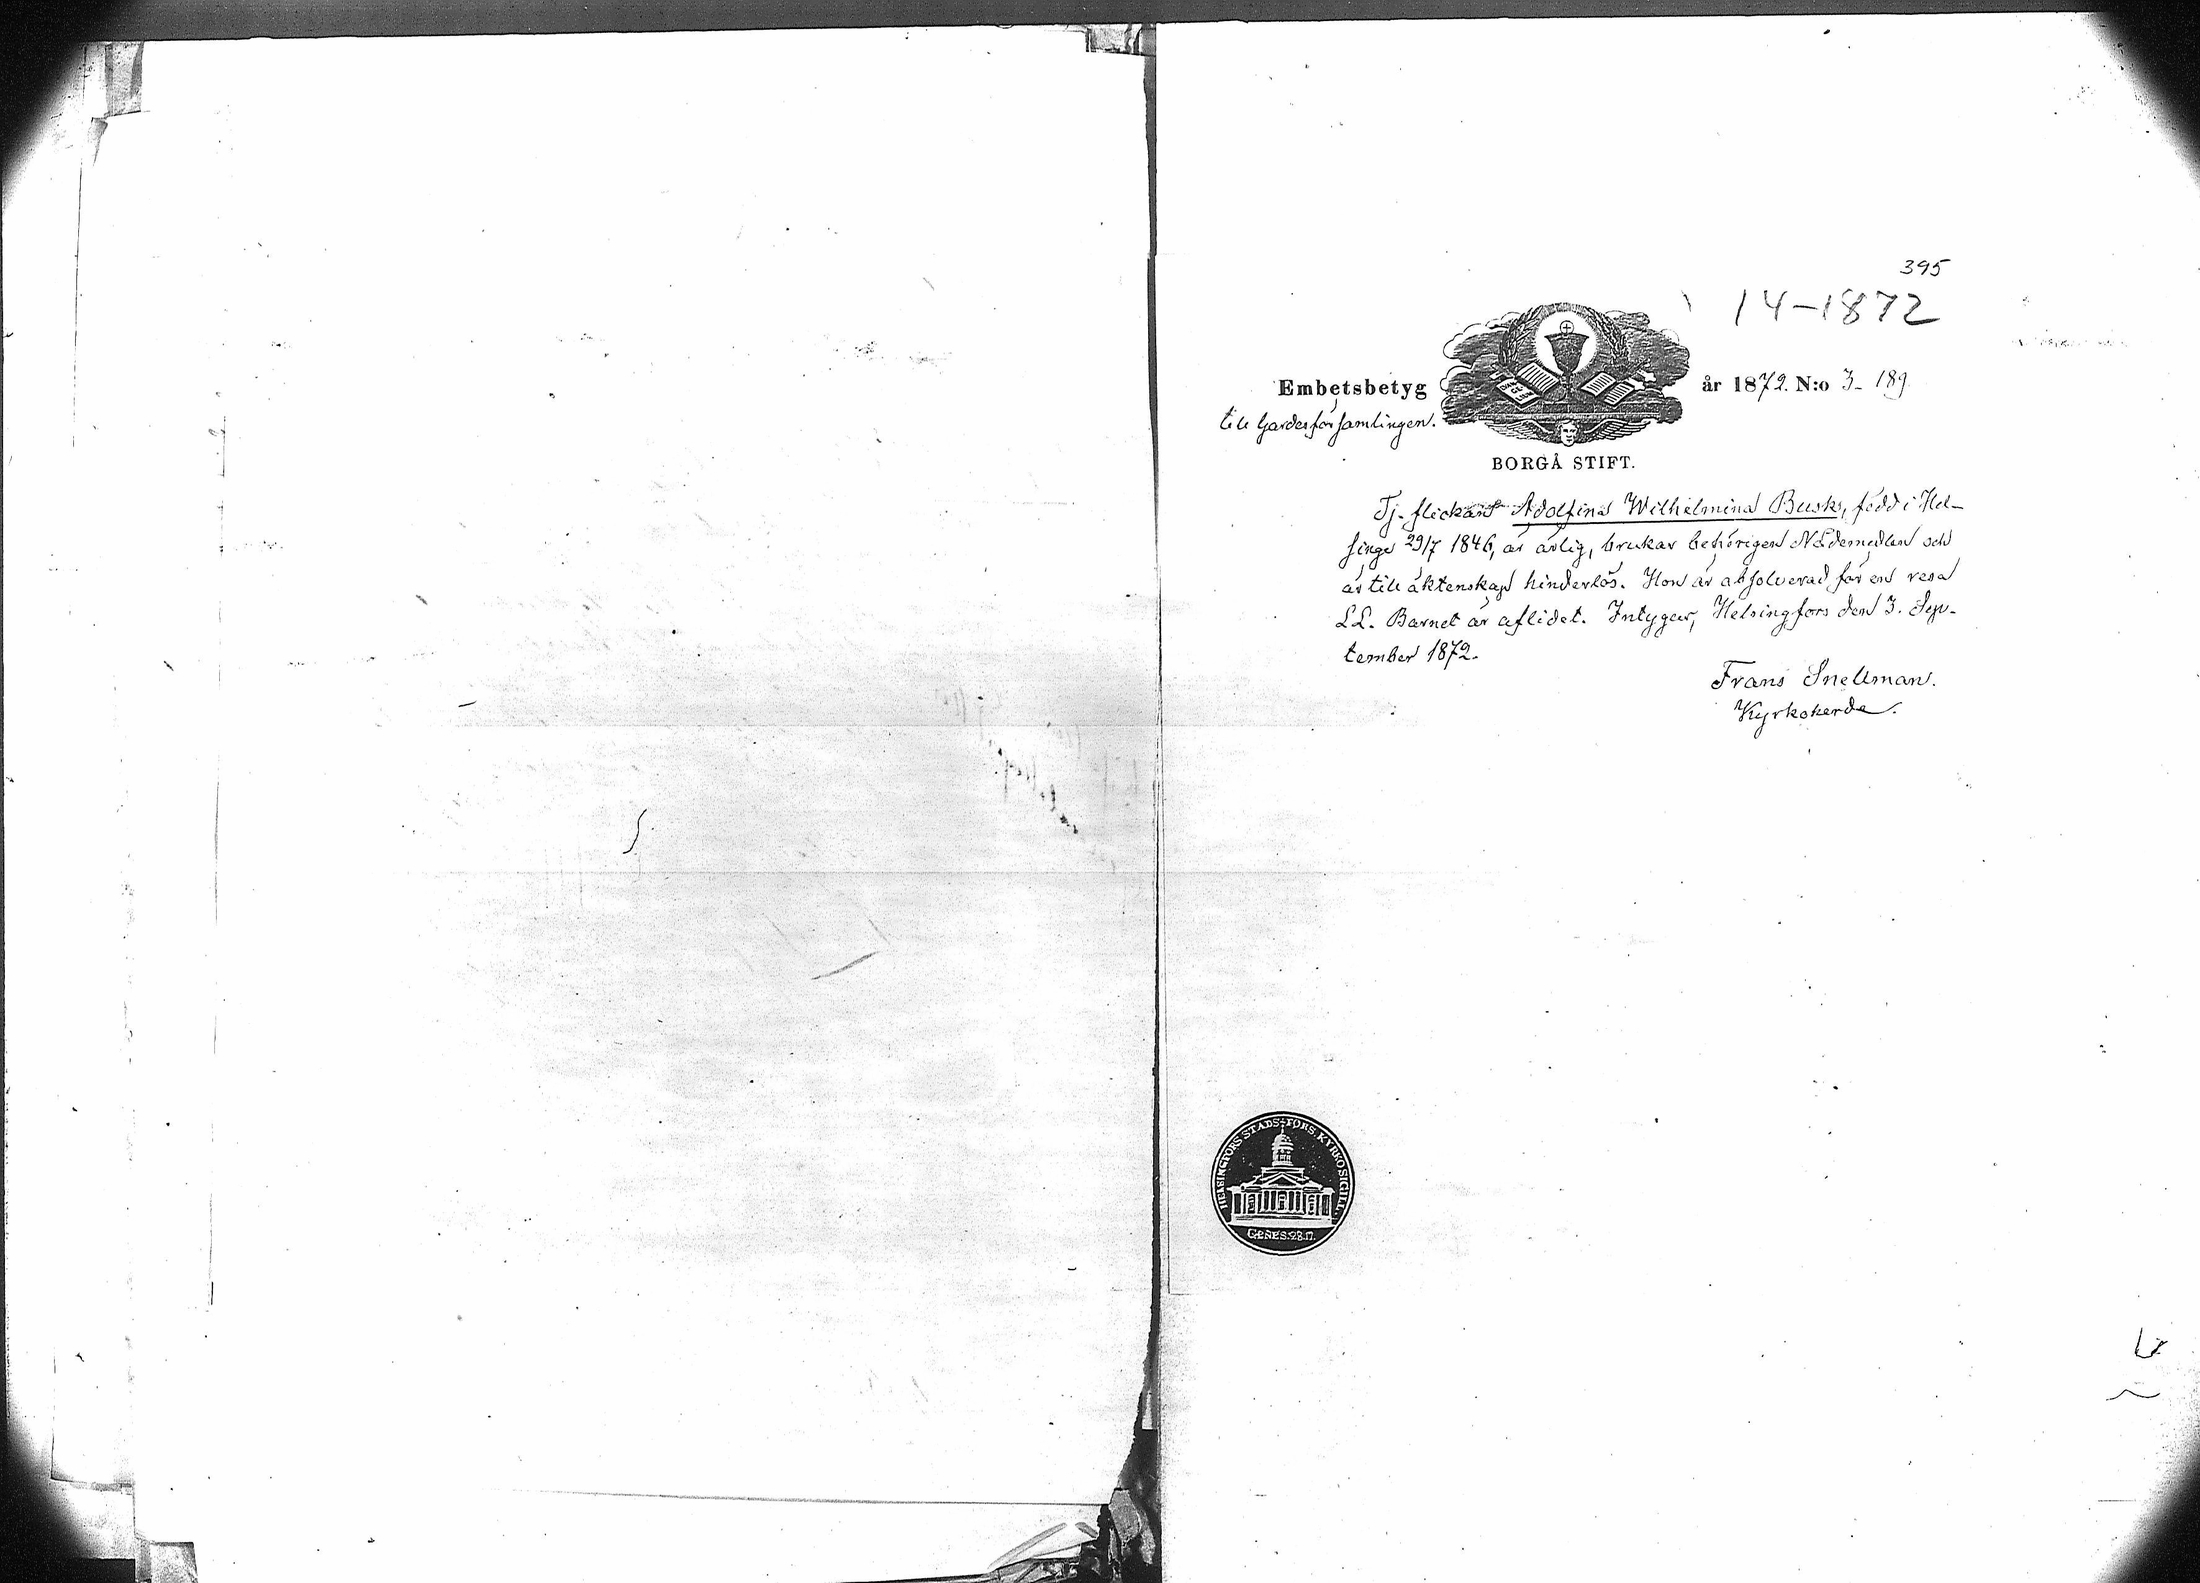 395
14-1872
Embetsbetyg år 1872. N:o 3- 189
till Gardesförsamlingen.
BORGÅ STIFT.
Tj. flickan Adolfina Wilhelmina Busk, född i Hel-
singe 29/7 1846, är ärlig, brukar behörigen Nådemedlen och
är till äktenskap hinderlös. Hon är absolverad för en resa
L.L. Barnet är aflidet. Intygar, Helsingfors den 3. Sep-
tember 1872.
Frans Snellman.
Kyrkoherde.
HELSINGFORS STADS-FÖRS. KYRKOSIGILL.